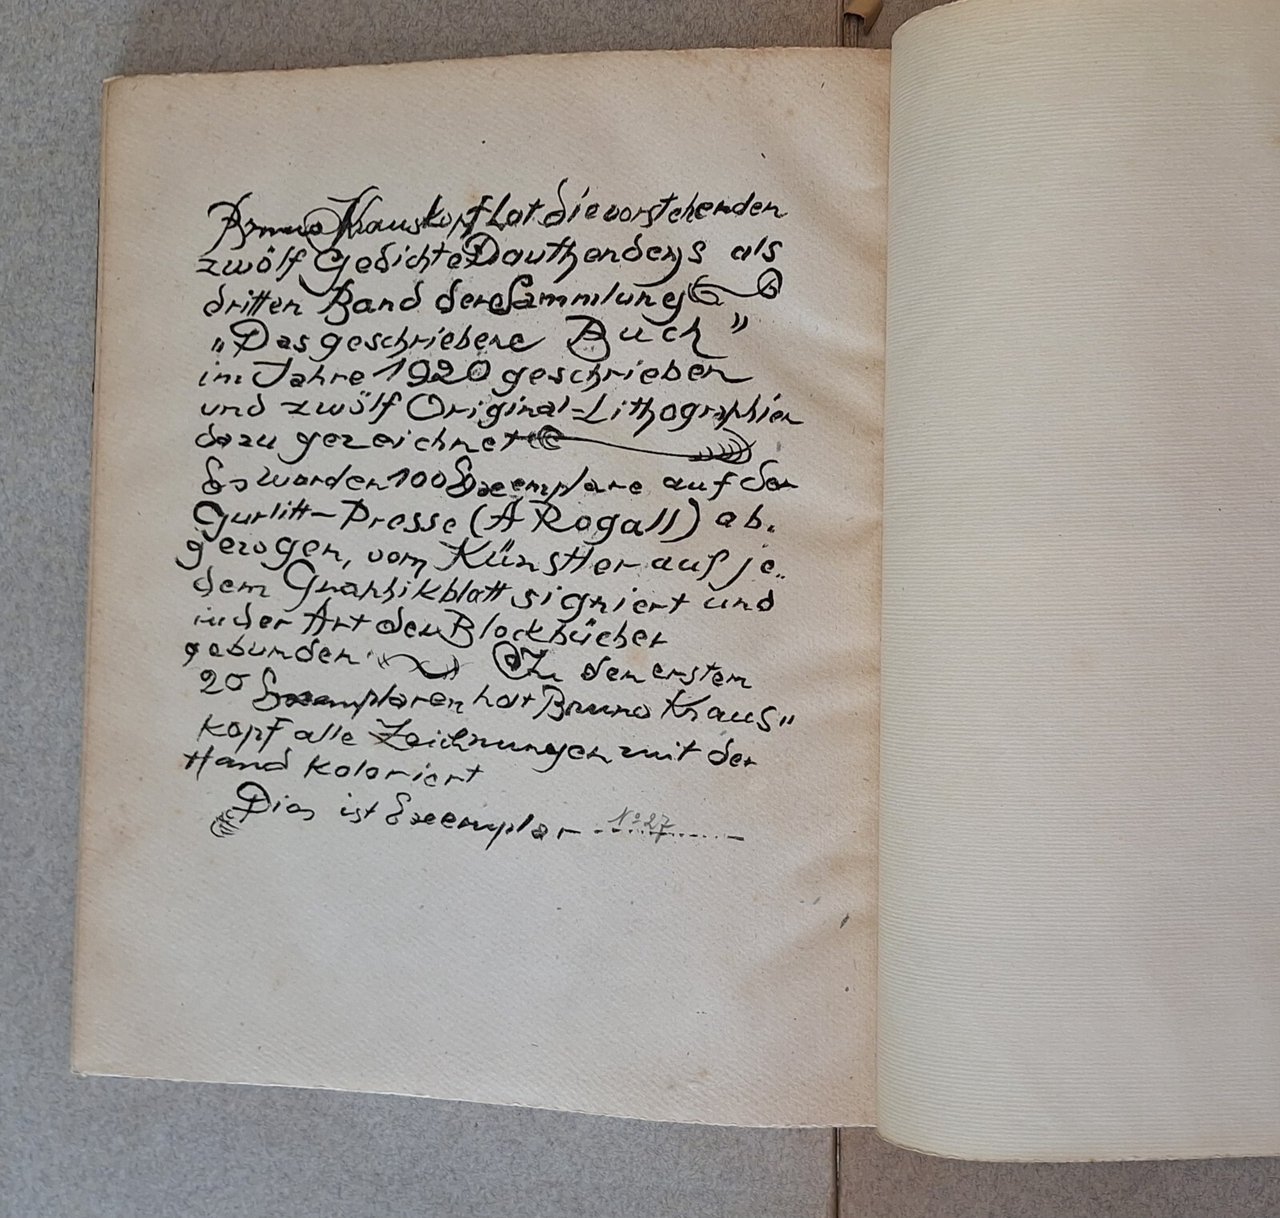 Bruno Krauskopf hat die vorstehenden
zwölf Gedichte Dauthendeys als
dritten Band der Sammlung
„Das geschriebene Buch"
im Jahre 1920 geschrieben
und zwölf Original=Lithographien
dazu gezeichnet
Es wurden 100 Exemplare auf der
Gurlitt-Presse (A Rogall) ab-
gezogen, vom Künstler auf je-
dem Graphikblatt signiert und
in der Art der Blockbücher
gebunden Zu den ersten
20 Exemplaren hat Bruno Kraus"
kopf alle Zeichnungen mit der
Hand koloriert
Dies ist Exemplar No 27